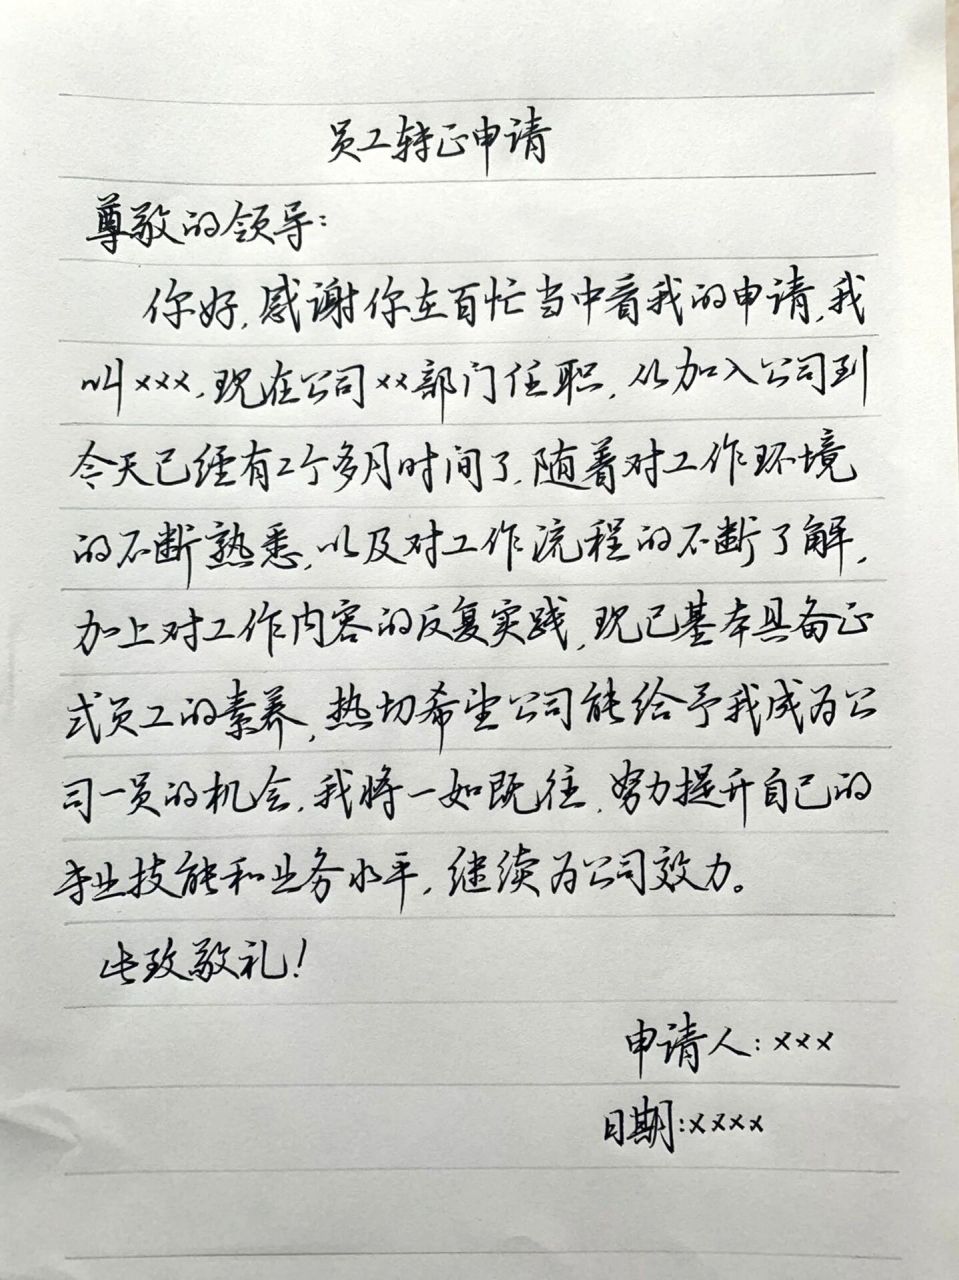 员工转正申请
尊敬的领导:
你好,感谢你在百忙当中看我的申请,我
叫×××,现在公司××部门任职,从加入公司到
今天已经有2个多月时间了,随着对工作环境
的不断熟悉,以及对工作流程的不断了解,
加上对工作内容的反复实践,现已基本具备正
式员工的素养,热切希望公司能给予我成为公
司一员的机会,我将一如既往,努力提升自己的
专业技能和业务水平,继续为公司效力。
此致敬礼!
申请人:×××
日期:××××